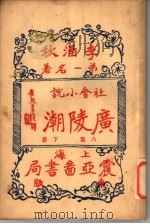 李涵秋
第一名著
社會小說
廣陵潮
上海
震亞圖書局